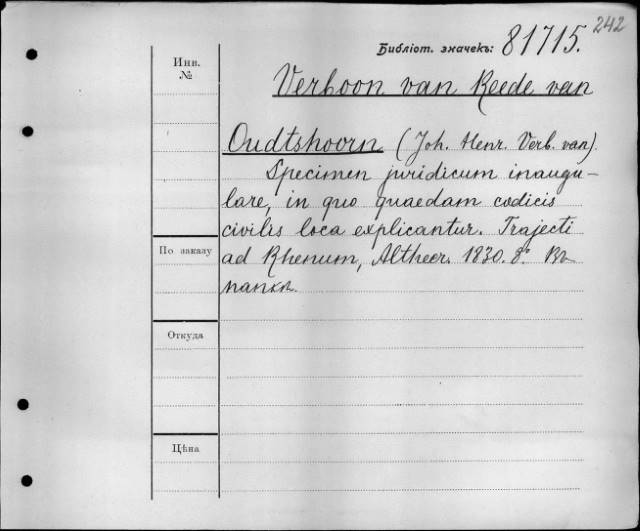 242
Библіот. значекъ: 81715.
Инв.
№
Verboon van Reede van
Oudtshoorn (Joh. Henr. Verb. van).
Specimen juridicum inaugu-
lare, in quo quaedam codicis
civilis loca explicantur. Trajecti
По заказу
ad Rhenum, Altheer. 1830. 8°. Въ
папкѣ.
Откуда
Цѣна